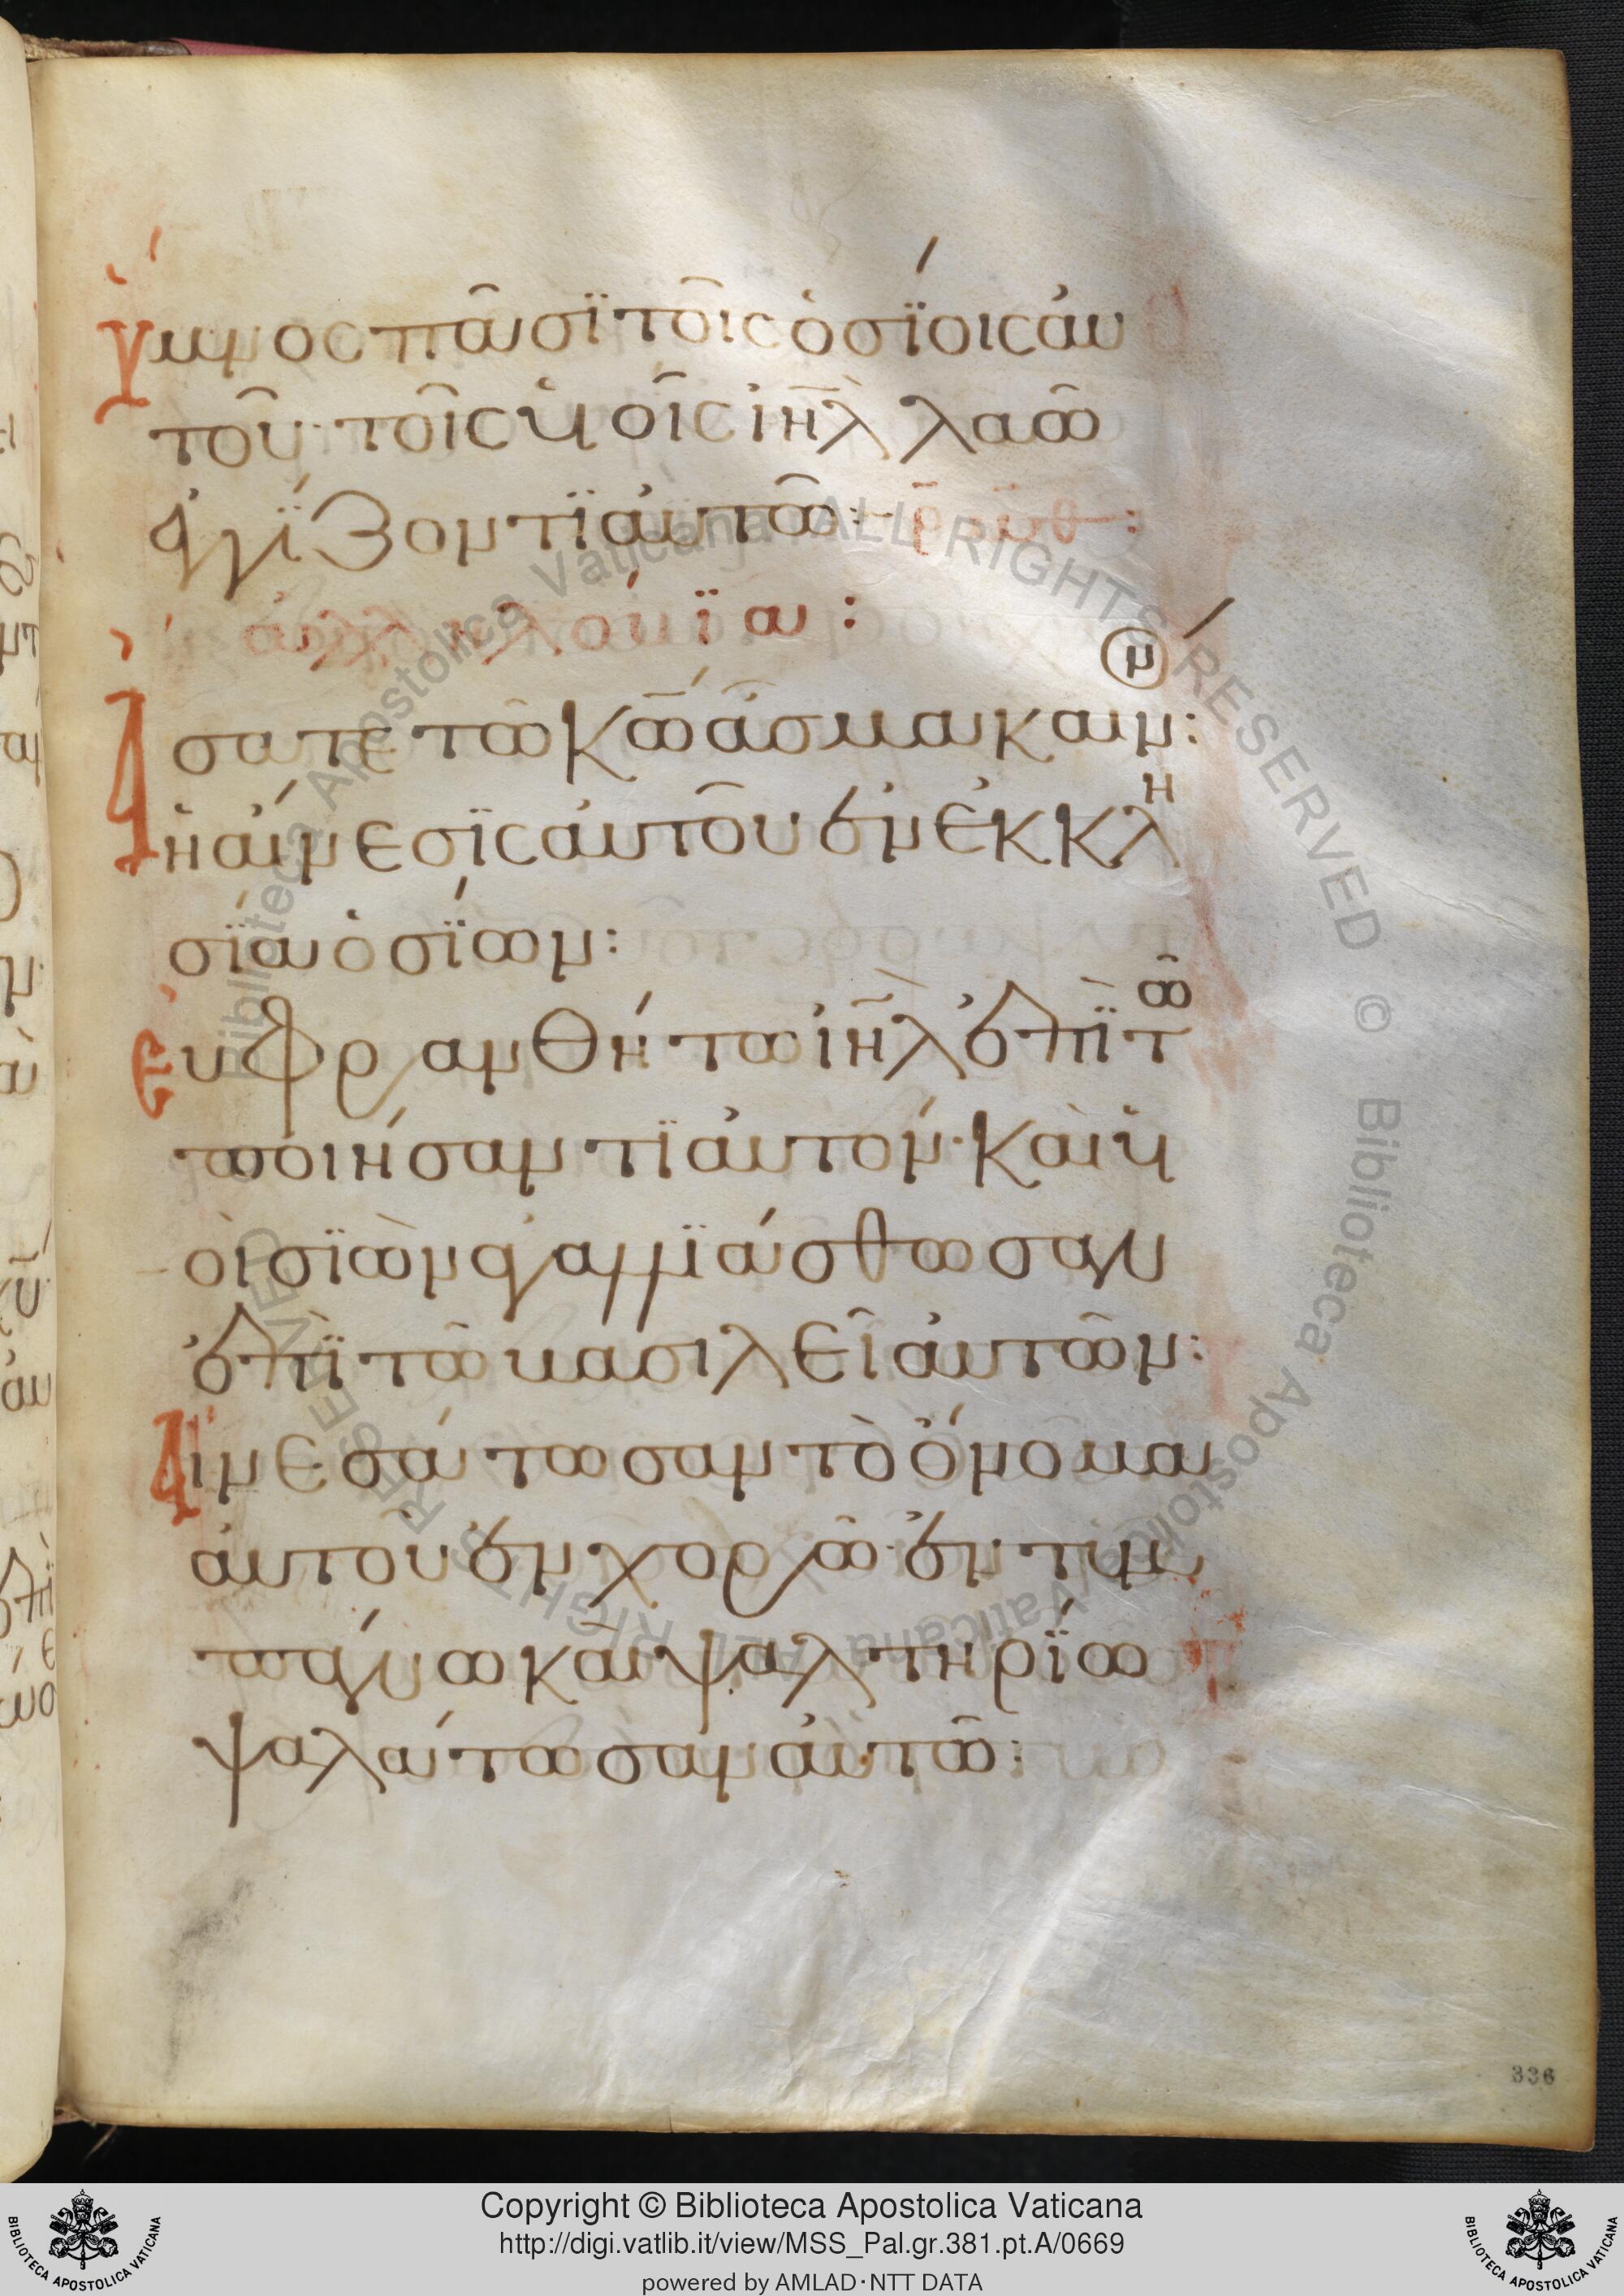 ὕμνος πᾶσϊ τοῖς ὁσΐοις αὐ
τοῦ· τοῖς υἱοῖς ἰηλ̅ λαῶ
ἐγγΐζοντϊ αὐτῶ:
ἀλληλούϊα:
ἄσατε τῶ κω̅ ἆσμα καιν
όν:
ἡ αἴνεσϊς αὐτοῦ ἐν ἐκκλη
σΐα ὁσΐων:
εὐφρανθήτω ἰηλ̅ ἐπῒ τῶ
ποιήσαντϊ αὐτόν· καὶ υἱ
οὶ σϊὼν ἀγαλλϊάσθωσαν
ἐπῒ τῶ βασιλεῖ αὐτῶν:
αἰνεσάτωσαν τὸ ὄνομα
αὐτοῦ ἐν χορῶ· ἐν τυμ
πάνω καὶ ψαλτηρΐω
ψαλάτωσαν αὐτῶ:
336
Copyright © Biblioteca Apostolica Vaticana
http://digi.vatlib.it/view/MSS_Pal.gr.381.pt.A/0669
powered by AMLAD·NTT DATA
BIBLIOTECA APOSTOLICA VATICANA
BIBLIOTECA APOSTOLICA VATICANA
Biblioteca Apostolica Vaticana ALL RIGHTS RESERVED ©
Biblioteca Apostolica Vaticana ALL RIGHTS RESERVED